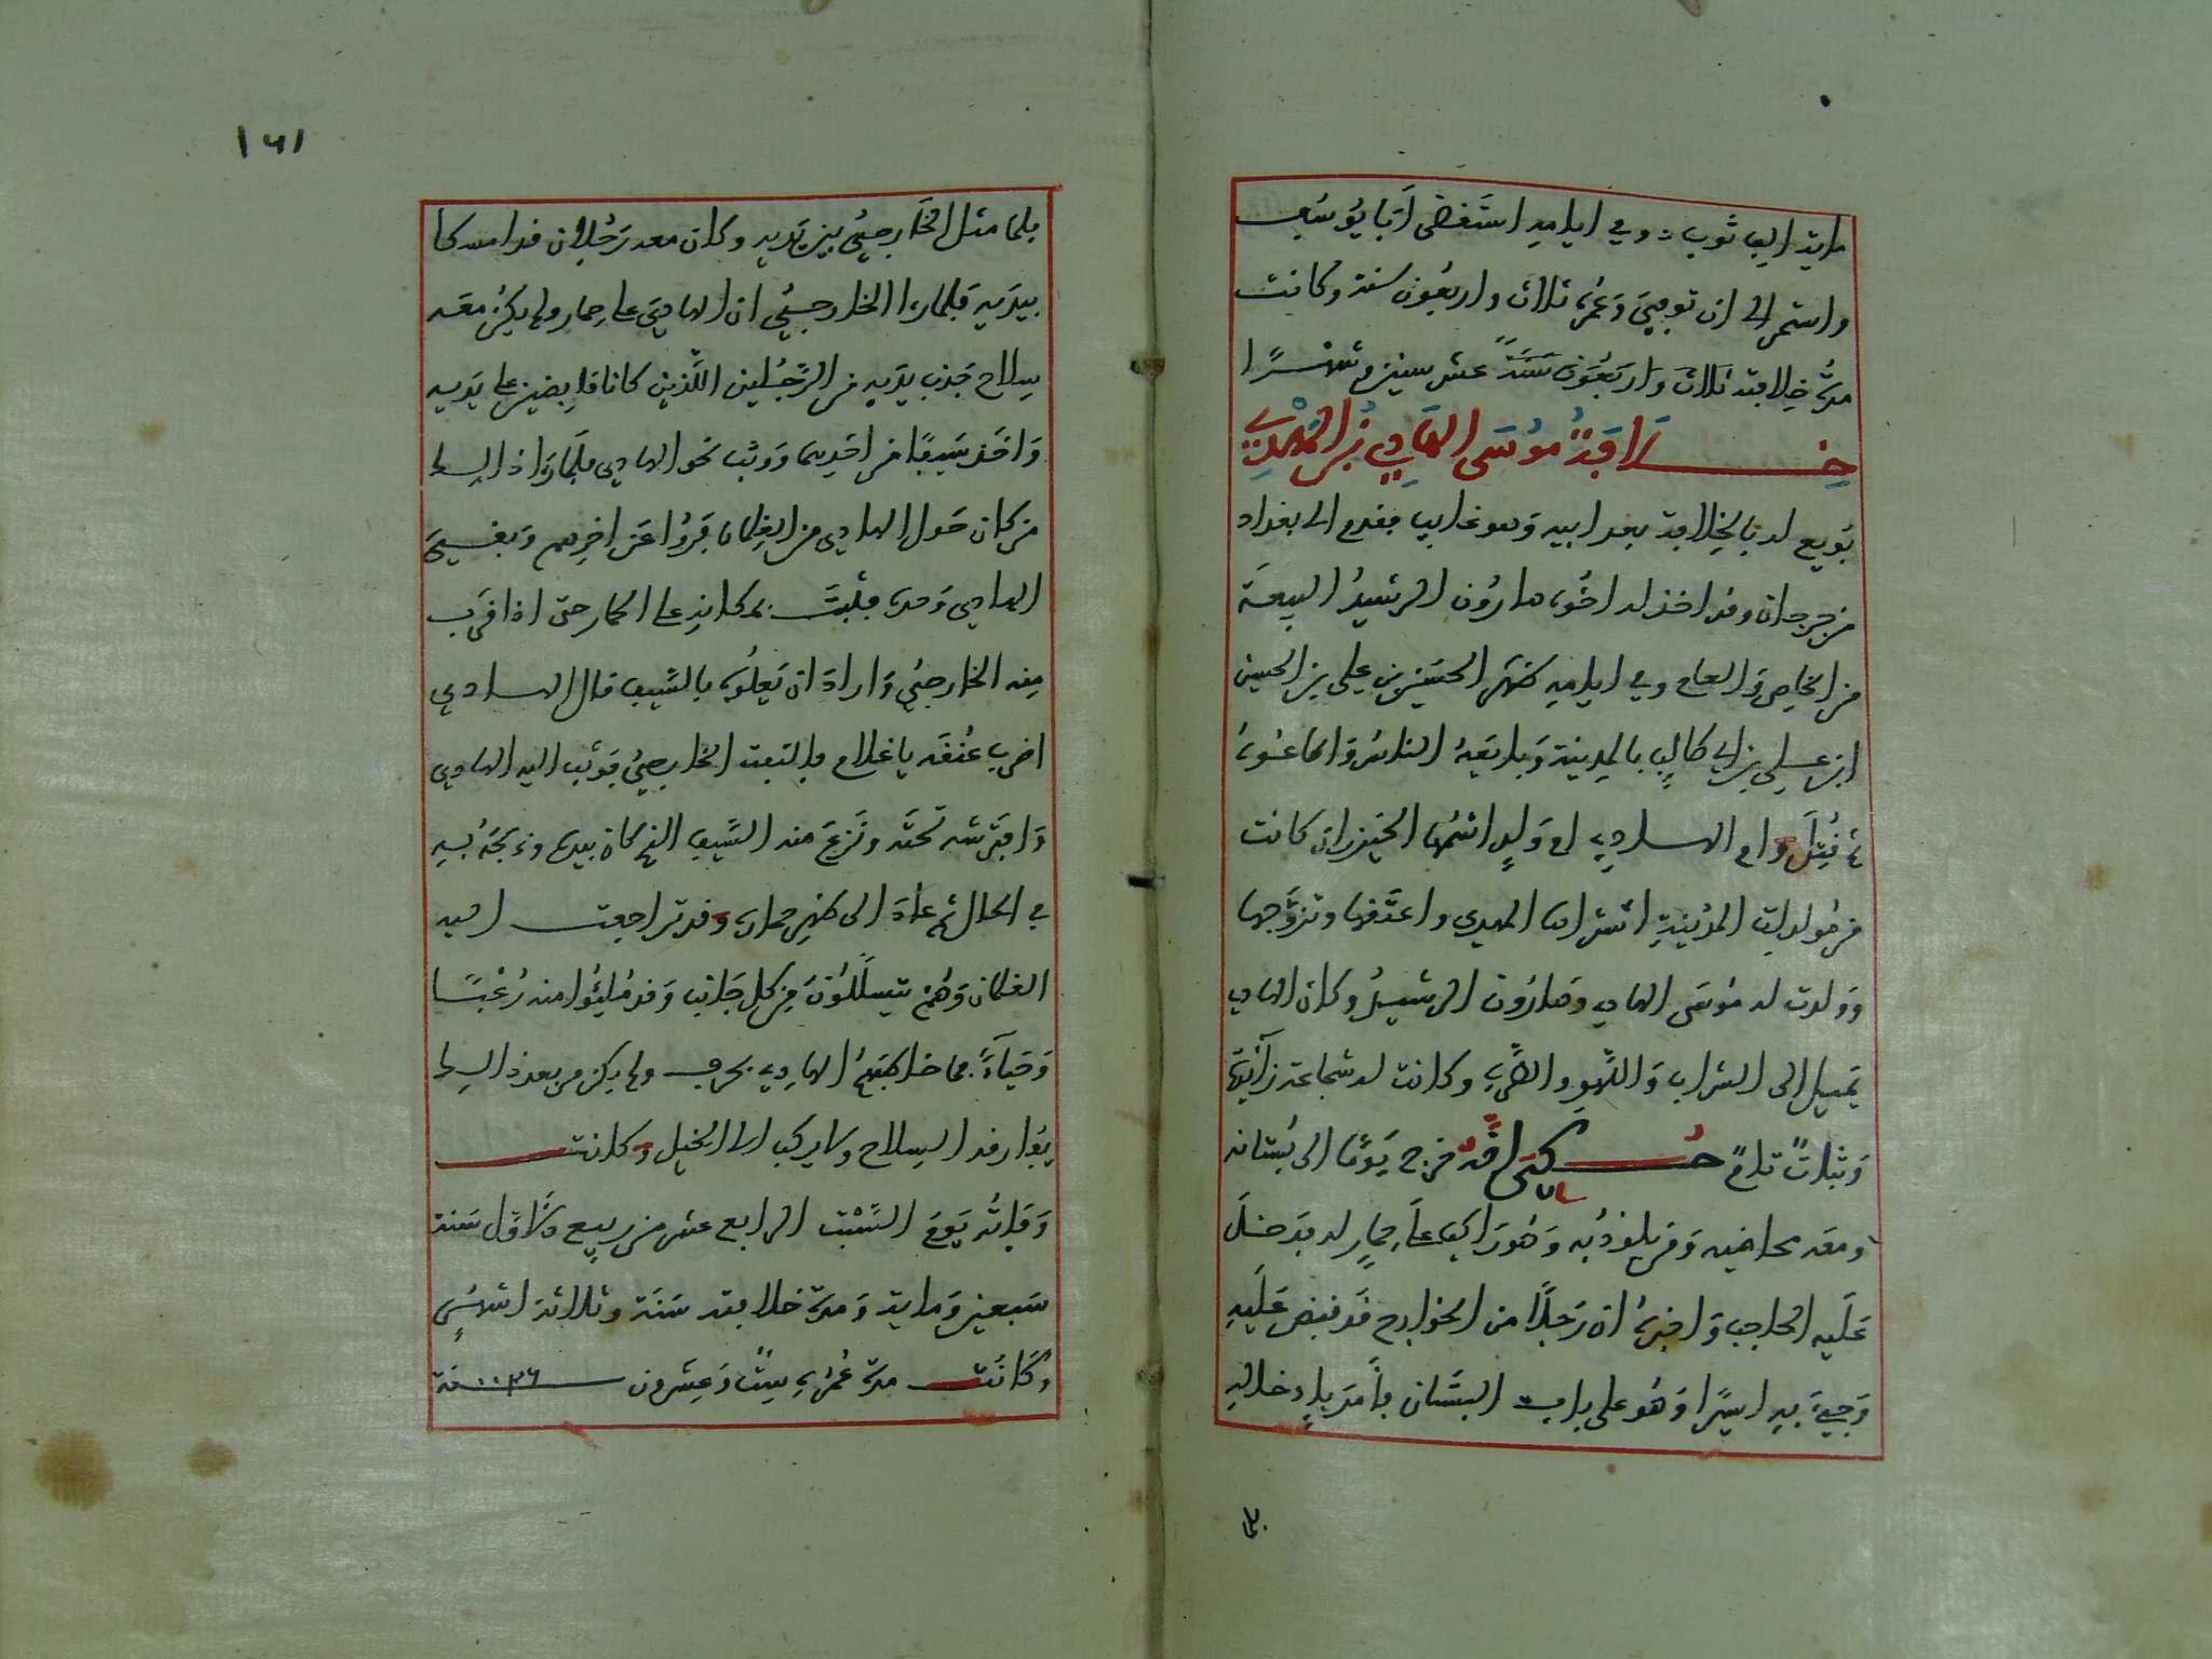 ماية الف ثوب : وفي ايامه استقضى ابا يوسف
واستمر الى ان توفي وعمره ثلاث واربعون سنة وكانت
مدة خلافته ثلاث واربعون سنة عشر سنين وشهرا
خلافة موسى الهادي بن المهدي
بويع له بالخلافة بعد ابيه وهو غايب فقدم الى بغداد
من جرجان وقد اخذ له اخوه هارون الرشيد البيعة
من الخاص والعام وفي ايامه ظهر الحسين بن علي بن الحسين
ابن علي بن ابي طالب بالمدينة وبايعه الناس واطاعوه
ثم قتل وام الهادي ام ولد اسمها الخيزران كانت
من مولدات المدينة اشتراها المهدي واعتقها وتزوجها
وولدت له موسى الهادي وهارون الرشيد وكان الهادي
يميل الى الشراب واللهو والطرب وكانت له شجاعة زايدة
وثبات تام حكي انه خرج يوما الى بستانه
ومعه خاضيه ومن يلوذ به وهو راكب على حمار له فدخل
عليه الحاجب واخبره ان رجلا من الخوارج قد قبض عليه
وجيء به اسيرا وهو على باب البستان فامر بادخاله
فلما
١٦١
فلما مثل الخارجي بين يديه وكان معه رجلان قد امسكا
بيديه فلما راا الخارجي ان الهادي على حمار ولم يكن معه
سلاح جذب يديه من الرجلين اللذين كانا قابضين على يديه
واخذ سيفا من احدهما ووثب نحو الهادي فلما راو ذالك
من كان حول الهادي من الغلمان فروا عن اخرهم وبقي
الهادي وحده فثبت بمكانه على الحمار حتى اذا قرب
منه الخارجي واراد ان يعلوه بالسيف قال الهادي
اضرب عنقه يا غلام فالتفت الخارجي فوثب اليه الهادي
وافترشه تحته ونزع منه السيف الذي كان بيده وذبحه به
في الحال ثم عاد الى ظهر حماره وقد تراجعت اليه
الغلمان وهم يتسللون من كل جانب وقد مليوا منه رعبا
وحياء فما خاطبهم الهادي بحرف ولم يكن من بعد ذالك
يفارقه السلاح ولا يركب الا الخيل وكانت
وفاته يوم السبت الرابع عشر من ربيع الاول سنة
سبعين وماية ومدة خلافته سنة وثلاثة اشهر
وكانت مدة عمره ست وعشرون سنة ٢٦